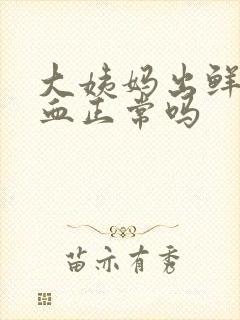 大姨妈出鲜
血正常吗
苗亦有秀